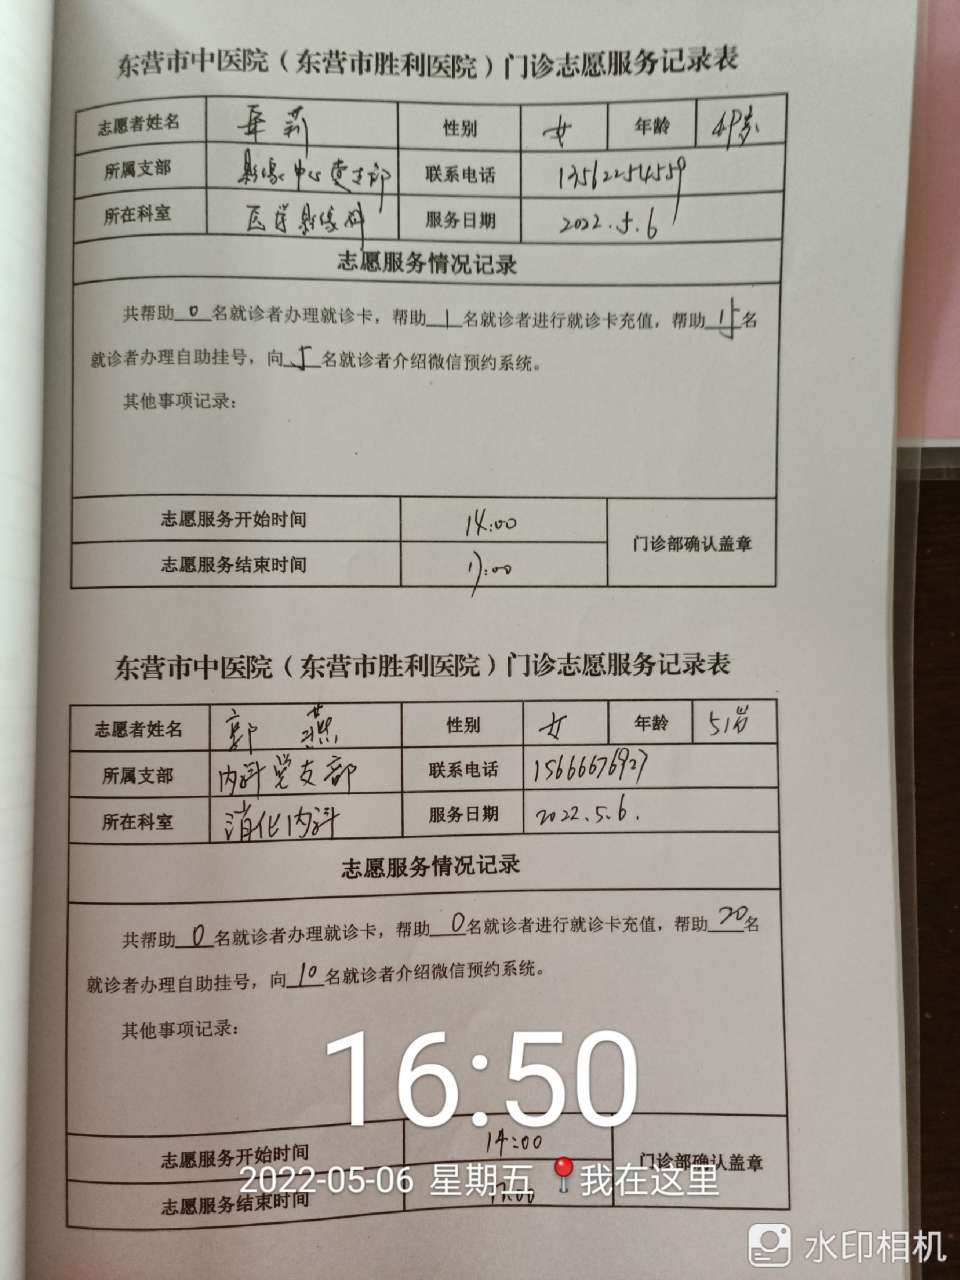 东营市中医院（东营市胜利医院）门诊志愿服务记录表
志愿者姓名 莉 性别 女 年龄 49岁
所属支部 影像中心党支部 联系电话 13562254559
所在科室 医学影像科 服务日期 2022.5.6
志愿服务情况记录
共帮助 0 名就诊者办理就诊卡，帮助 1 名就诊者进行就诊卡充值，帮助 15 名
就诊者办理自助挂号，向 5 名就诊者介绍微信预约系统。
其他事项记录：
志愿服务开始时间 14:00
门诊部确认盖章
志愿服务结束时间 17:00
东营市中医院（东营市胜利医院）门诊志愿服务记录表
志愿者姓名 郭燕 性别 女 年龄 51岁
所属支部 内科党支部 联系电话 15666676927
所在科室 消化内科 服务日期 2022.5.6.
志愿服务情况记录
共帮助 0 名就诊者办理就诊卡，帮助 0 名就诊者进行就诊卡充值，帮助 20 名
就诊者办理自助挂号，向 10 名就诊者介绍微信预约系统。
其他事项记录：
16:50
志愿服务开始时间 14:00
门诊部确认盖章
2022-05-06 星期五 我在这里
志愿服务结束时间 17:00
水印相机